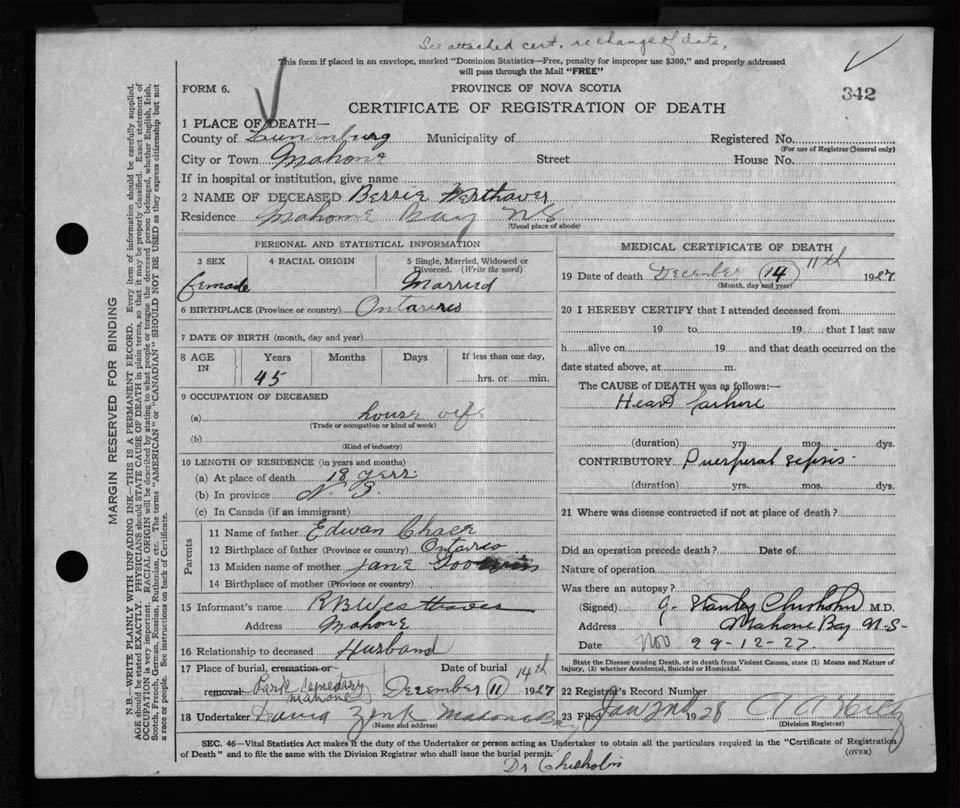 See attached cert. re change of date.
This form if placed in an envelope, marked "Dominion Statistics—Free, penalty for improper use $300," and properly addressed
will pass through the Mail "FREE"
342
FORM 6.
PROVINCE OF NOVA SCOTIA
CERTIFICATE OF REGISTRATION OF DEATH
1 PLACE OF DEATH—
County of Lunenburg Municipality of Registered No.
(For use of Registrar General only)
City or Town Mahone Street House No.
If in hospital or institution, give name
2 NAME OF DECEASED Bessie Westhaver
Residence Mahone Bay N S
(Usual place of abode)
PERSONAL AND STATISTICAL INFORMATION
3 SEX 4 RACIAL ORIGIN 5 Single, Married, Widowed or Divorced. (Write the word)
female Married
6 BIRTHPLACE (Province or country)
7 DATE OF BIRTH (month, day and year)
8 AGE IN Years Months Days If less than one day,
45 hrs. or min.
9 OCCUPATION OF DECEASED
(a) house wife
(Trade or occupation or kind of work)
(b)
(Kind of industry)
10 LENGTH OF RESIDENCE (in years and months)
(a) At place of death 18
(b) In province N. S.
(c) In Canada (if an immigrant)
Parents
11 Name of father Edwan
12 Birthplace of father (Province or country)
13 Maiden name of mother Jane
14 Birthplace of mother (Province or country)
15 Informant's name R B Westhaver
Address Mahone
16 Relationship to deceased Husband
17 Place of burial, cremation or removal Park Cemetary Mahone
Date of burial 14th December 11 1927
18 Undertaker David Zink Mahone Bay
(Name and address)
MEDICAL CERTIFICATE OF DEATH
19 Date of death December 14 11th 1927
(Month, day and year)
20 I HEREBY CERTIFY that I attended deceased from
19 to 19 , that I last saw
h alive on 19 and that death occurred on the
date stated above, at m.
The CAUSE OF DEATH was as follows:—
Heart failure
(duration) yrs. mos. dys.
CONTRIBUTORY Puerperal sepsis
(duration) yrs. mos. dys.
21 Where was disease contracted if not at place of death?
Did an operation precede death? Date of
Nature of operation
Was there an autopsy?
(Signed) Stanley Chisholm M.D.
Address Mahone Bay N-S-
Date 29-12-27
State the Disease causing Death, or in death from Violent Causes, state (1) Means and Nature of
Injury, (2) whether Accidental, Suicidal or Homicidal.
22 Registrar's Record Number
23 Filed Jan 2nd 1928
(Division Registrar)
SEC. 46—Vital Statistics Act makes it the duty of the Undertaker or person acting as Undertaker to obtain all the particulars required in the "Certificate of Registration
of Death" and to file the same with the Division Registrar who shall issue the burial permit.
(OVER)
Dr Chisholm
MARGIN RESERVED FOR BINDING
N.B.—WRITE PLAINLY WITH UNFADING INK—THIS IS A PERMANENT RECORD. Every item of information should be carefully supplied.
AGE should be stated EXACTLY. PHYSICIANS should STATE CAUSE OF DEATH in plain terms, so that it may be properly classified. Exact statement of
OCCUPATION is very important. RACIAL ORIGIN will be described by stating to what people or tongue the deceased person belonged, whether English, Irish,
Scotch, French, German, Russian, Ruthenian, etc. The terms "AMERICAN" or "CANADIAN" SHOULD NOT BE USED as they express citizenship but not
a race or people. See instructions on back of Certificate.